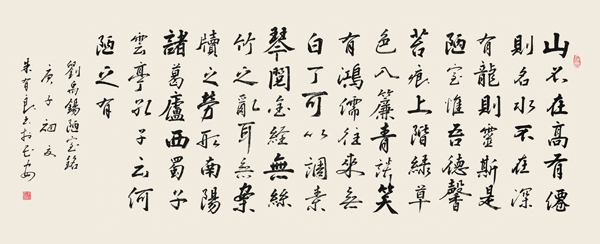 山不在高有僊
則名水不在深
有龍則靈斯是
陋室惟吾德馨
苔痕上階綠草
色入簾青談笑
有鴻儒往來無
白丁可以調素
琴閱金經無絲
竹之亂耳無案
牘之勞形南陽
諸葛廬西蜀子
雲亭孔子云何
陋之有
劉禹錫陋室銘
庚子初夏
朱有良